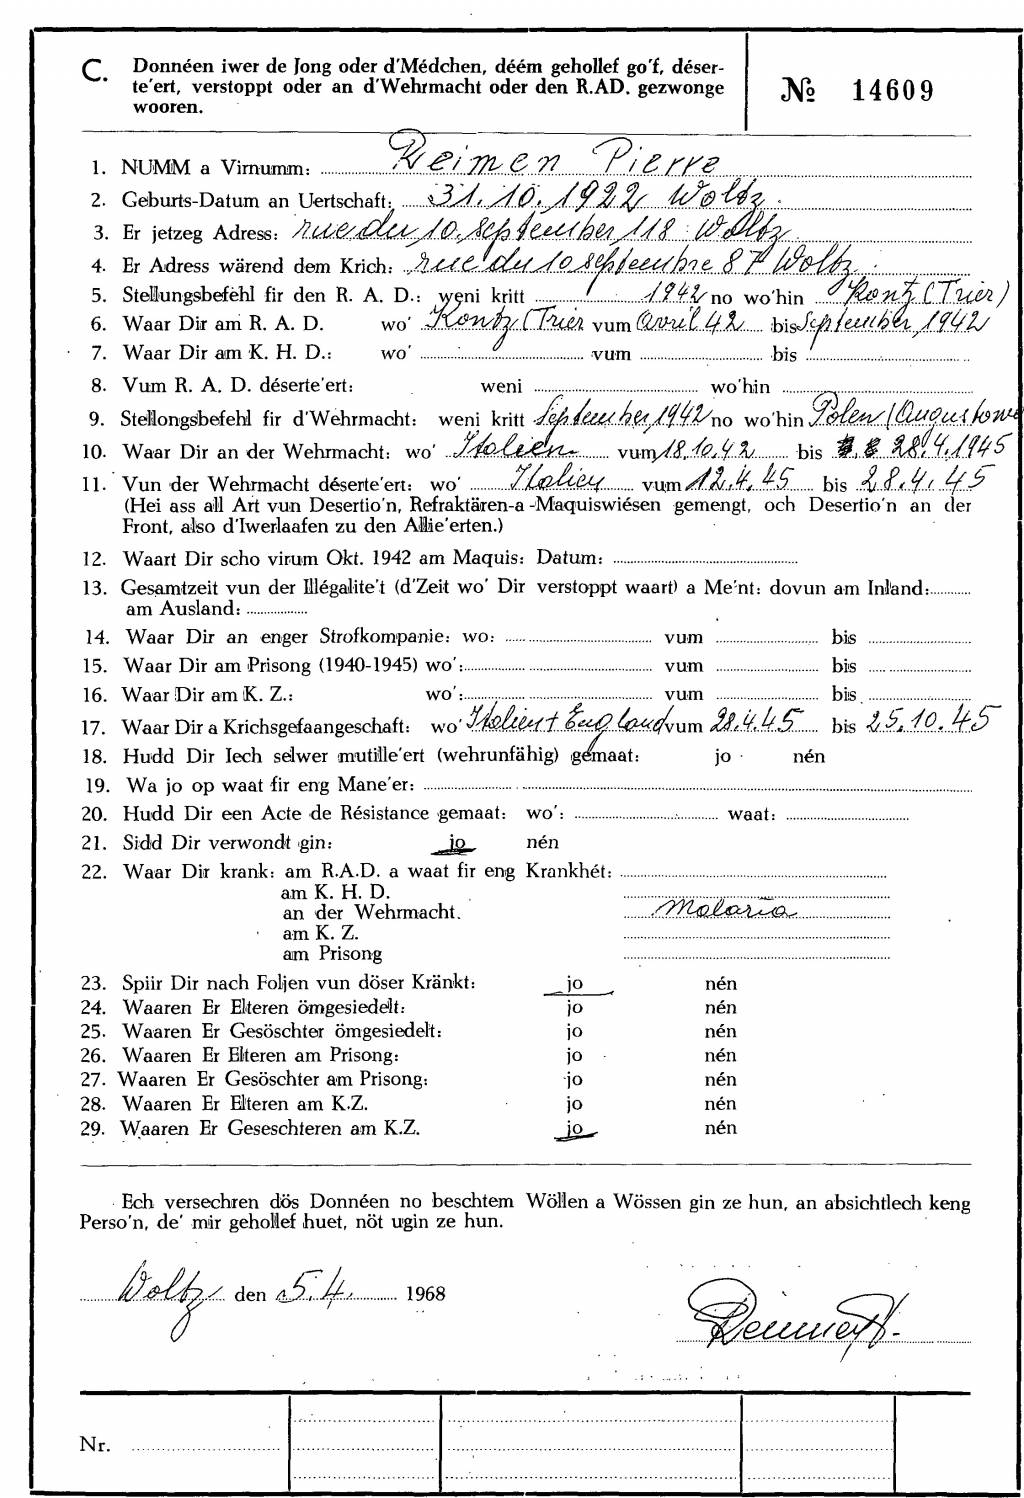 C. Donnéen iwer de Jong oder d'Médchen, déém gehollef go'f, déser-
te'ert, verstoppt oder an d'Wehrmacht oder den R.AD. gezwonge
wooren.
№ 14609
1. NUMM a Virnumm: Reimen Pierre
2. Geburts-Datum an Uertschaft: 31.10.1922 Woltz.
3. Er jetzeg Adress: rue du 10 september 118 Woltz
4. Er Adress wärend dem Krich: rue du 10 septembre 87 Woltz.
5. Stellungsbefehl fir den R. A. D.: weni kritt 1942 no wo'hin Kontz (Trier)
6. Waar Dir am R. A. D. wo' Kontz (Trier vum Avril 42 bis September 1942
7. Waar Dir am K. H. D.: wo' vum bis
8. Vum R. A. D. déserte'ert: weni wo'hin
9. Stellongsbefehl fir d'Wehrmacht: weni kritt September 1942 no wo'hin Polen (Augustowe
10. Waar Dir an der Wehrmacht: wo' Italien vum 18.10.42 bis 28.4.1945
11. Vun der Wehrmacht déserte'ert: wo' Italien vum 12.4.45 bis 28.4.45
(Hei ass all Art vun Desertio'n, Refraktären-a-Maquiswiésen gemengt, och Desertio'n an der
Front, also d'Iwerlaafen zu den Allie'erten.)
12. Waart Dir scho virum Okt. 1942 am Maquis: Datum:
13. Gesamtzeit vun der Illégalite't (d'Zeit wo' Dir verstoppt waart) a Me'nt: dovun am Inland:
am Ausland:
14. Waar Dir an enger Strofkompanie: wo: vum bis
15. Waar Dir am Prisong (1940-1945) wo': vum bis
16. Waar Dir am K. Z.: wo': vum bis
17. Waar Dir a Krichsgefaangeschaft: wo' Italien + England vum 28.4.45 bis 25.10.45
18. Hudd Dir Iech selwer mutille'ert (wehrunfähig) gemaat: jo nén
19. Wa jo op waat fir eng Mane'er:
20. Hudd Dir een Acte de Résistance gemaat: wo': waat:
21. Sidd Dir verwondt gin: jo nén
22. Waar Dir krank: am R.A.D. a waat fir eng Krankhét:
am K. H. D.
an der Wehrmacht. Malaria
am K. Z.
am Prisong
23. Spiir Dir nach Foljen vun döser Kränkt: jo nén
24. Waaren Er Elteren ömgesiedelt: jo nén
25. Waaren Er Gesöschter ömgesiedelt: jo nén
26. Waaren Er Elteren am Prisong: jo nén
27. Waaren Er Gesöschter am Prisong: jo nén
28. Waaren Er Elteren am K.Z. jo nén
29. Waaren Er Geseschteren am K.Z. jo nén
Ech versechren dös Donnéen no beschtem Wöllen a Wössen gin ze hun, an absichtlech keng
Perso'n, de' mir gehollef huet, nöt ugin ze hun.
Woltz den 5.4. 1968
Nr.